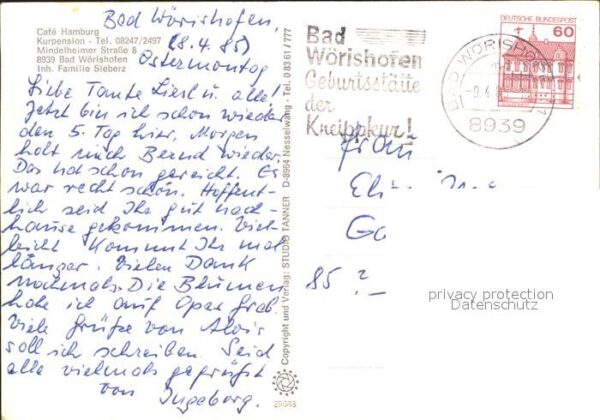 Bad Wörishofen,
(8.4.85)
Ostermontag
Café Hamburg
Kurpension - Tel. 08247/2497
Mindelheimer Straße 8
8939 Bad Wörishofen
Inh. Familie Sieberz
Liebe Tante Liesl u. alle!
Jetzt bin ich schon wieder
den 5. Tag hier, Morgen
holt mich Bernd wieder.
Das hat schon gereicht. Es
war recht schön. Hoffent-
lich seid Ihr gut nach-
hause gekommen. Viel-
leicht kommt Ihr mal
länger. Vielen Dank
nochmals. Die Blumen
habe ich auf Opas Grab.
Viele Grüße von Alois
soll ich schreiben. Seid
alle vielmals gegrüßt
von Ingeborg.
Copyright und Verlag: STUDIO TANNER D-8964 Nesselwang · Tel. 0 83 61 / 777
Bad
Wörishofen
Geburtsstätte
der
Kneippkur!
BAD WÖRISHOFEN 1
8939
DEUTSCHE BUNDESPOST
60
Frau
85
privacy protection
Datenschutz